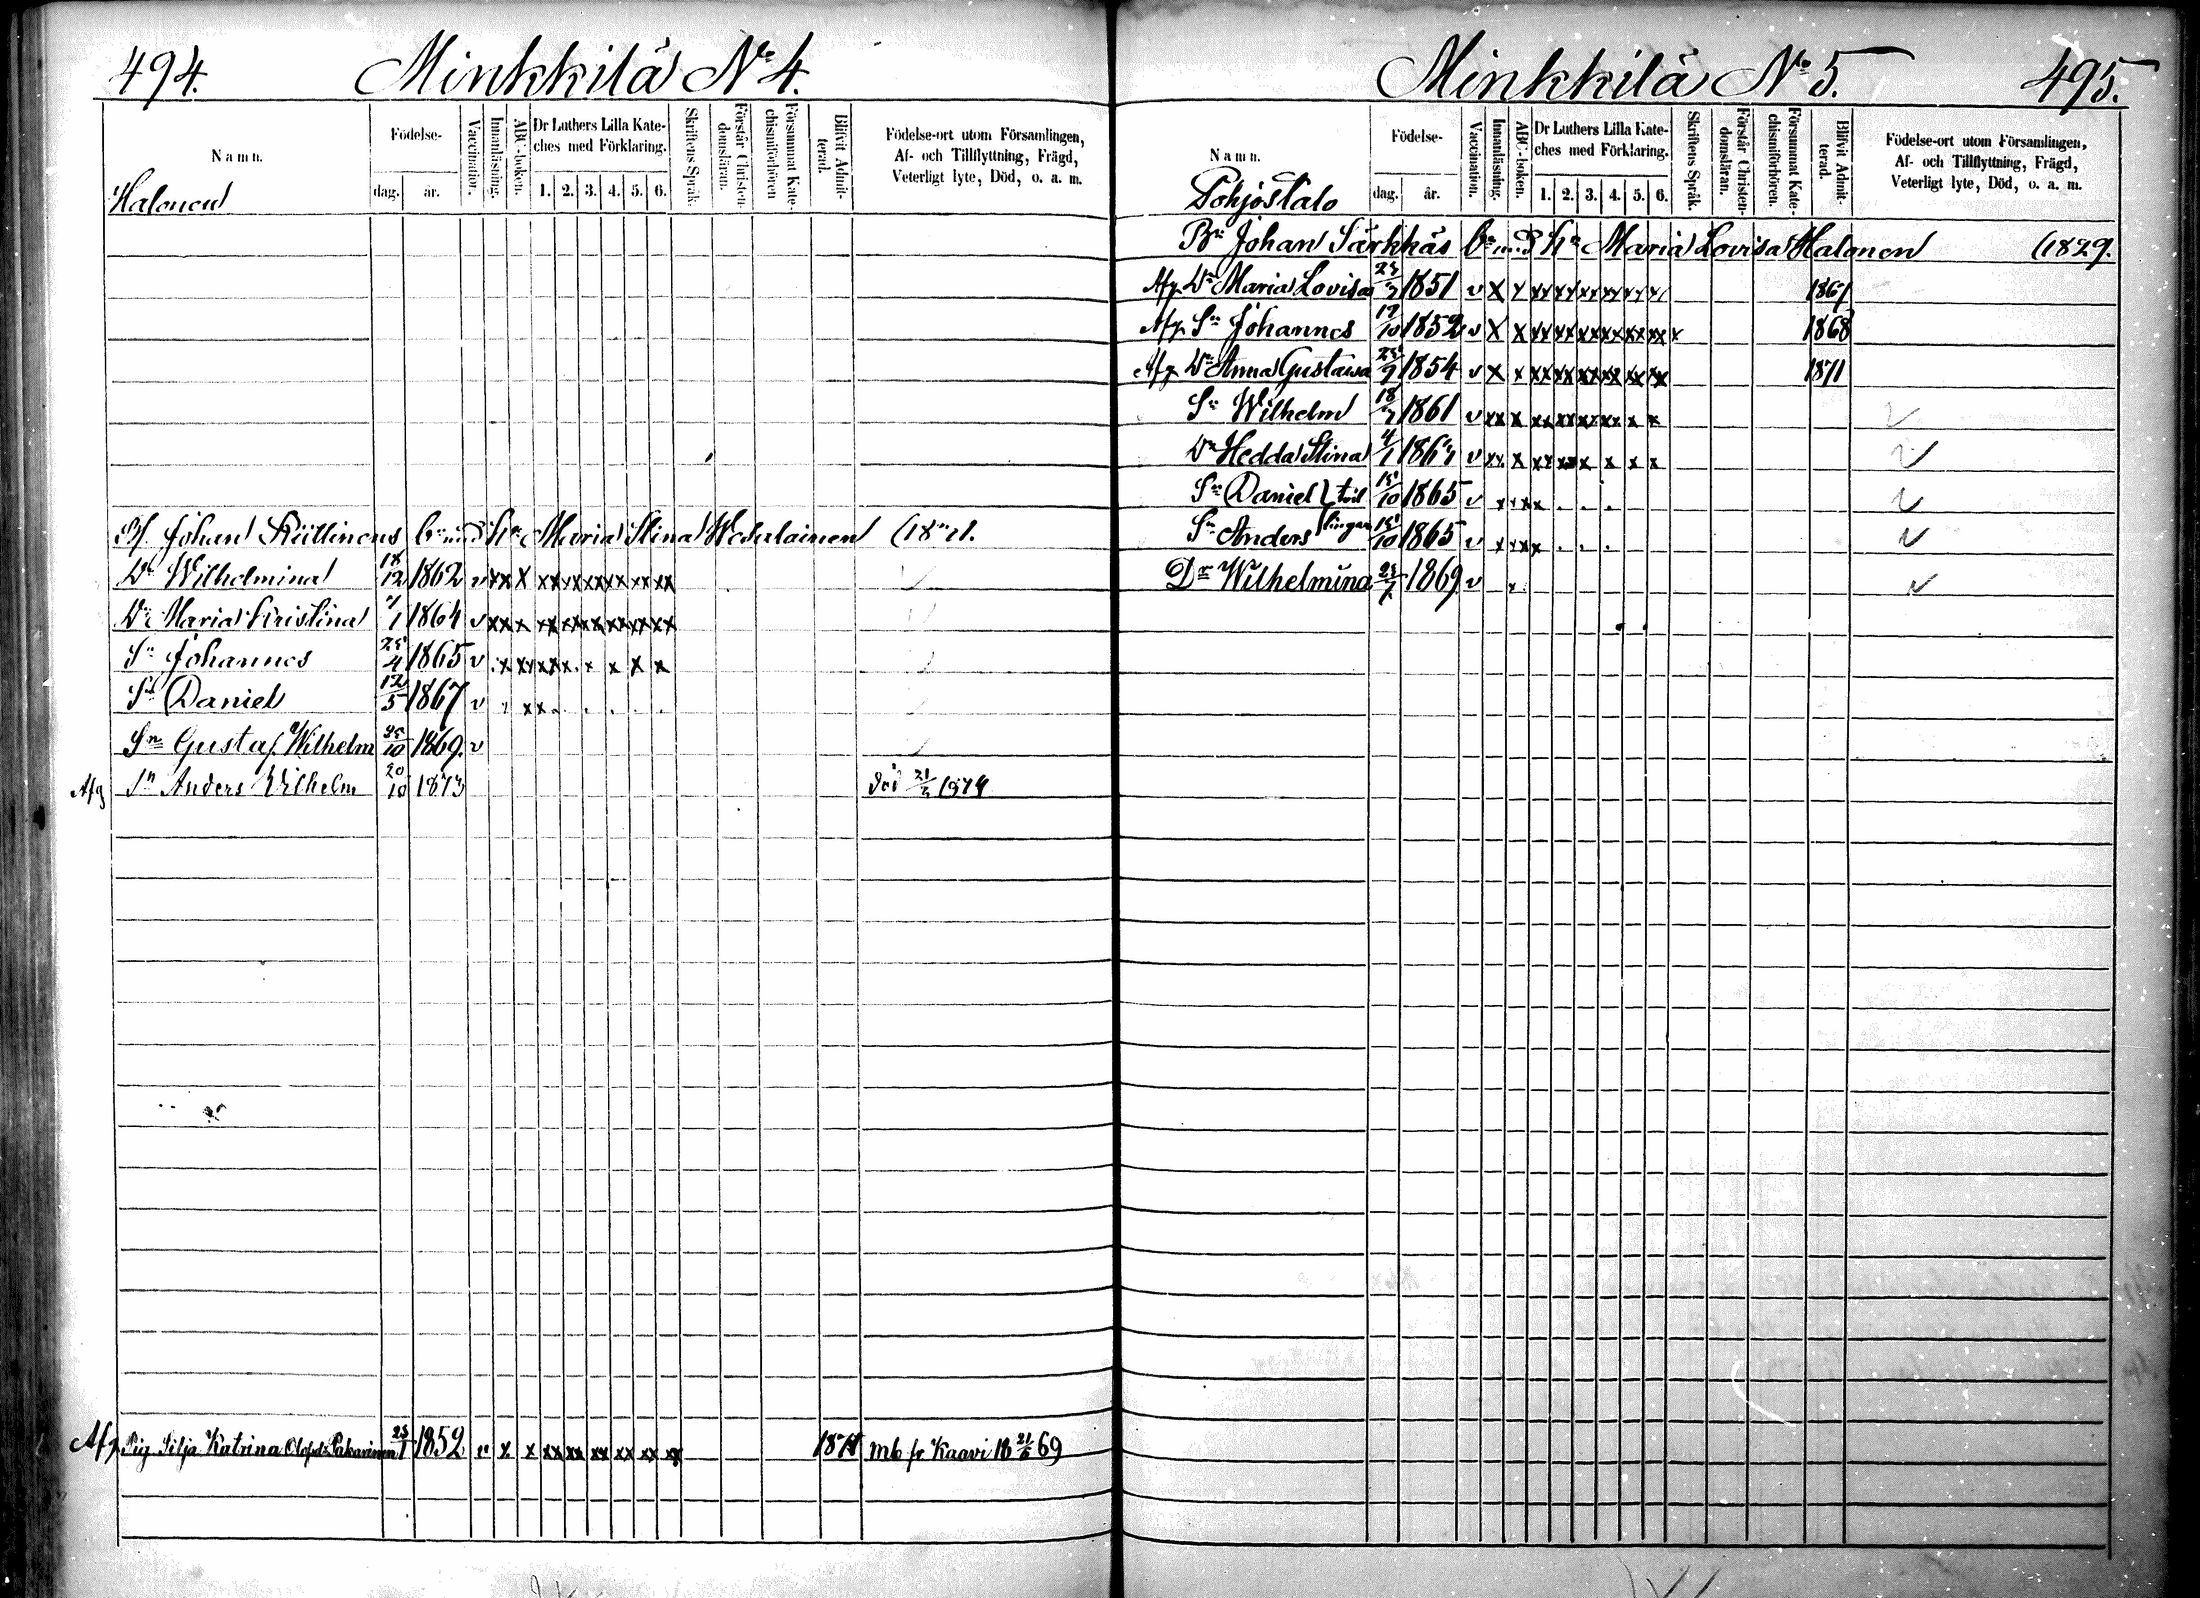 494. Minkkilä No 4.
Namn.
Födelse-
dag. år.
Vaccination.
Innanläsning.
ABC-boken.
Dr Luthers Lilla Kate-
ches med Förklaring.
1. 2. 3. 4. 5. 6.
Skriftens Språk.
Förstår Christen-
domsläran.
Försummat Kate-
chismiförhören
Blifvit Admit-
terad.
Födelse-ort utom Församlingen,
Af- och Tillflyttning, Frägd,
Veterligt lyte, Död, o. a. m.
Halonen
Johan Hr Maria Stina
Dr Wilhelmina 18/12 1862 v xx x xx xx xx xx xx xx
Dr Maria Kristina 7/1 1864 v xx x xx xx xx xx xx xx
Sn Johannes 25/4 1865 v
Sn Daniel 12/5 1867 v
Sn Gustaf Wilhelm 25/10 1869. v
Afg Sn Anders Vilhelm 20/10 1873
Afg Pig Silja Katrina Olofsdr Pakarinen 1852 v x x xx xx xx xx xx xx 1871 mb fr Kaavi 18 21/6 69
Minkkilä No 5. 495.
Namn.
Födelse-
dag. år.
Vaccination.
Innanläsning.
ABC-boken.
Dr Luthers Lilla Kate-
ches med Förklaring.
1. 2. 3. 4. 5. 6.
Skriftens Språk.
Förstår Christen-
domsläran.
Försummat Kate-
chismiförhören.
Blifvit Admit-
terad.
Födelse-ort utom Församlingen,
Af- och Tillflyttning, Frägd,
Veterligt lyte, Död, o. a. m.
Pohjostalo
Johan Särkkäs Hr Maria Lovisa Halonen (1829.
Afg. Dr Maria Lovisa 1851 v x x xx xx xx xx xx 1867
Afg. Sn Johannes 1852 v x x xx xx xx xx xx xx x 1868
Afg. Dr Anna Gustava 1854 v x x xx xx xx xx xx xx 1871
Sn Wilhelm 1861 v xx x xx xx xx xx x x
Dr Hedda Stina 4/1 186 v xx x xx xx x x x x
Sn Daniel } tvil 15/10 1865 v
Sn Anders lingar 15/10 1865 v
Dr Wilhelmina 1869 v